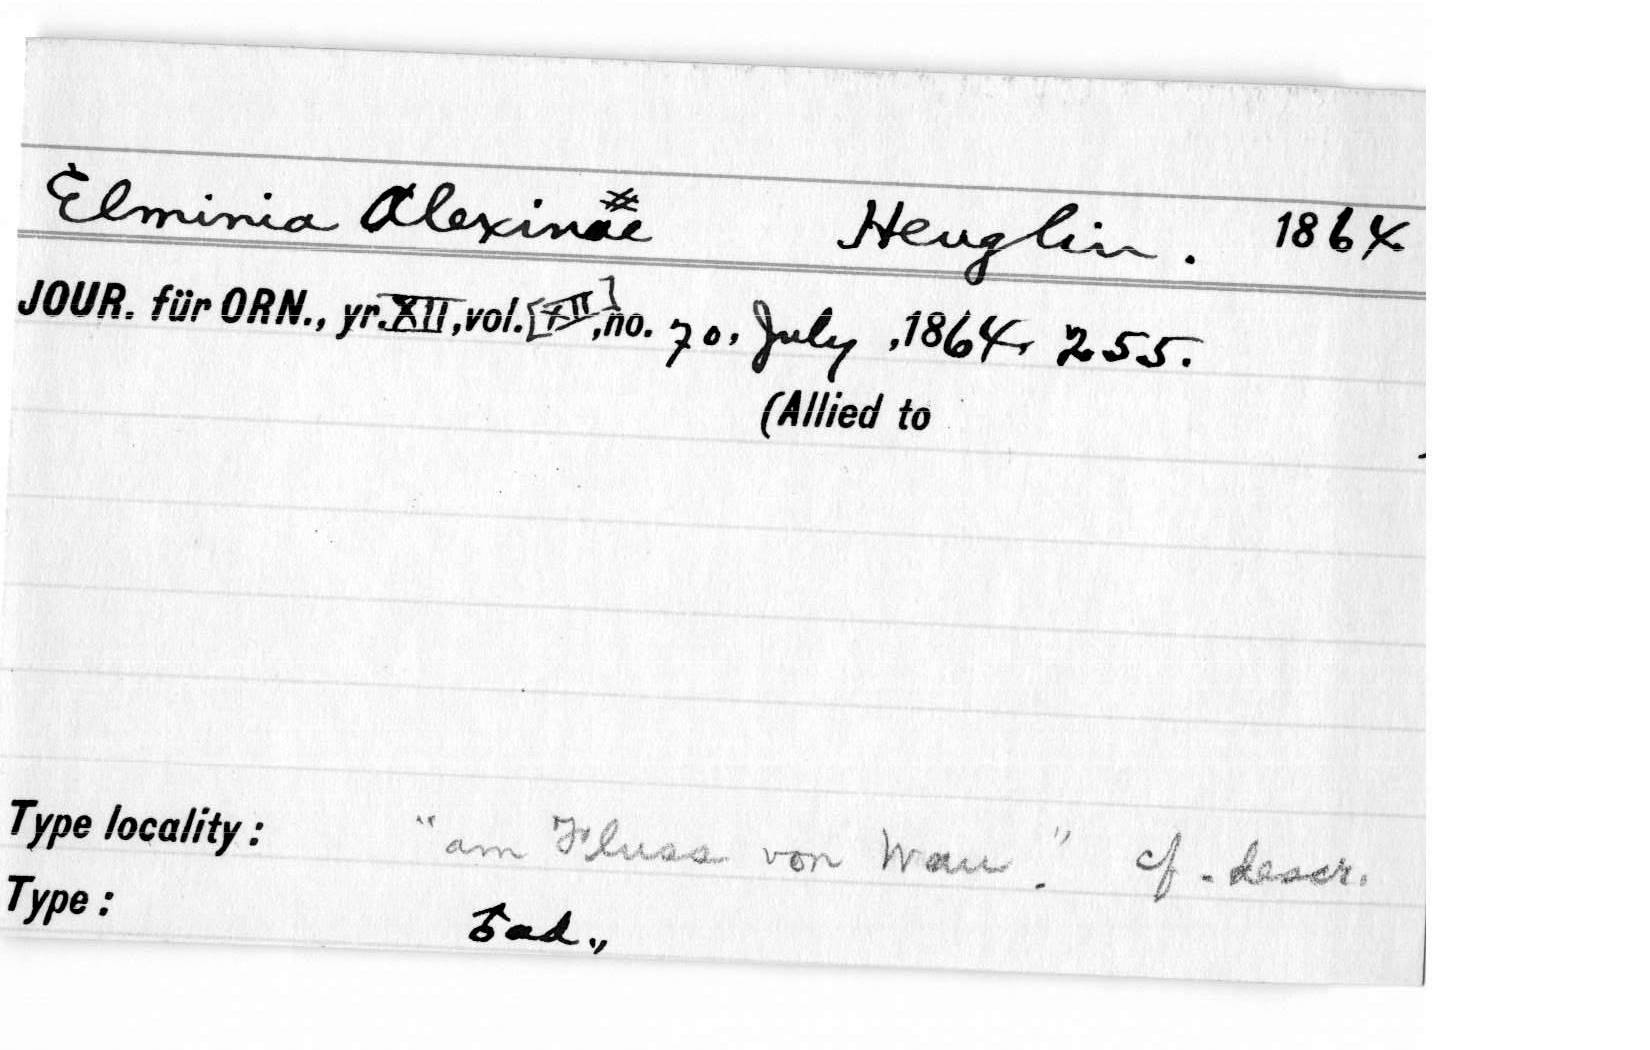 Elminia Alexinae Heuglin. 1864
JOUR. für ORN., yr. XII, vol. [XII], no. 70, July, 1864, 255.
(Allied to
Type locality: "am Fluss von Wau." cf. descr.
Type: ♂ ad.,